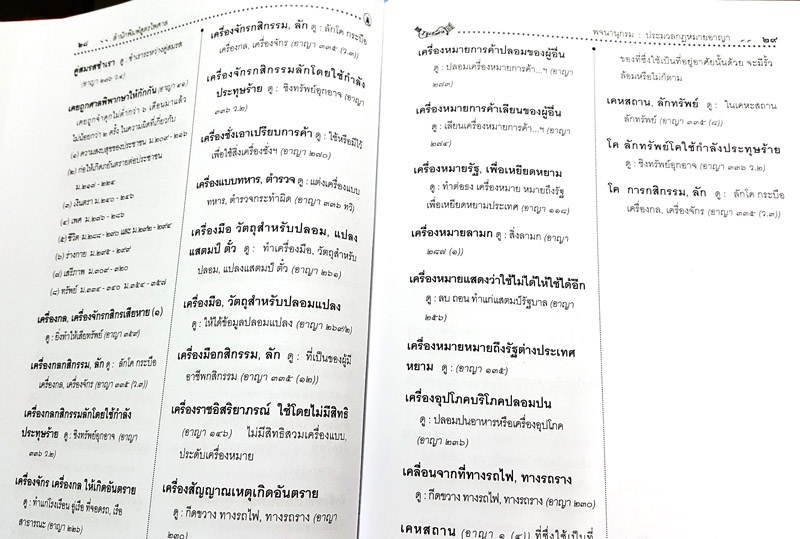 ๒๘ สำนักพิมพ์สูตรไพศาล
คู่สมรสชำเรา ดู : ชำเราระหว่างคู่สมรส
(อาญา ๒๗๖ ว.๔)
เคยถูกศาลพิพากษาให้กักกัน (อาญา ๔๑)
เคยถูกจำคุกไม่ต่ำกว่า ๖ เดือนมาแล้ว
ไม่น้อยกว่า ๒ ครั้ง ในความผิดที่เกี่ยวกับ
(๑) ความสงบสุขของประชาชน ม.๒๐๙ - ๒๑๖
(๒) ก่อให้เกิดภยันตรายต่อประชาชน
ม.๒๑๗ - ๒๒๔
(๓) เงินตรา ม.๒๔๐ - ๒๔๖
(๔) เพศ ม.๒๗๖ - ๒๘๖
(๕) ชีวิต ม.๒๘๘ - ๒๙๐ และ ม.๒๙๒ - ๒๙๔
(๖) ร่างกาย ม.๒๙๕ - ๒๙๙
(๗) เสรีภาพ ม.๓๐๙ - ๓๒๐
(๘) ทรัพย์ ม.๓๓๔ - ๓๔๐ ม.๓๕๔ - ๓๕๗
เครื่องกล, เครื่องจักรกสิกรเสียหาย (๑)
ดู : ยิ่งทำให้เสียทรัพย์ (อาญา ๓๕๙)
เครื่องกลกสิกรรม, ลัก ดู : ลักโค กระบือ
เครื่องกล, เครื่องจักร (อาญา ๓๓๕ (ว.๓))
เครื่องกลกสิกรรมลักโดยใช้กำลัง
ประทุษร้าย ดู : ชิงทรัพย์อุกอาจ (อาญา
๓๓๖ ว.๒)
เครื่องจักร เครื่องกล ให้เกิดอันตราย
ดู : ทำแก่โรงเรือน อู่เรือ ที่จอดรถ, เรือ
สาธารณะ (อาญา ๒๒๖)
เครื่องจักรกสิกรรม, ลัก ดู : ลักโค กระบือ
เครื่องกล, เครื่องจักร (อาญา ๓๓๕ (ว.๓))
เครื่องจักรกสิกรรมลักโดยใช้กำลัง
ประทุษร้าย ดู : ชิงทรัพย์อุกอาจ (อาญา
๓๓๖ ว.๒)
เครื่องชั่งเอาเปรียบการค้า ดู : ใช้หรือมีไว้
เพื่อใช้สิ่งเครื่องชั่งฯ (อาญา ๒๗๐)
เครื่องแบบทหาร, ตำรวจ ดู : แต่งเครื่องแบบ
ทหาร, ตำรวจกระทำผิด (อาญา ๓๓๖ ทวิ)
เครื่องมือ วัตถุสำหรับปลอม, แปลง
แสตมป์ ตั๋ว ดู : ทำเครื่องมือ, วัตถุสำหรับ
ปลอม, แปลงแสตมป์ ตั๋ว (อาญา ๒๖๑)
เครื่องมือ, วัตถุสำหรับปลอมแปลง
ดู : ให้ได้ข้อมูลปลอมแปลง (อาญา ๒๖๙/๒)
เครื่องมือกสิกรรม, ลัก ดู : ที่เป็นของผู้มี
อาชีพกสิกรรม (อาญา ๓๓๕ (๑๒))
เครื่องราชอิสริยาภรณ์ ใช้โดยไม่มีสิทธิ
(อาญา ๑๔๖) ไม่มีสิทธิสวมเครื่องแบบ,
ประดับเครื่องหมาย
เครื่องสัญญาณเหตุเกิดอันตราย
ดู : กีดขวาง ทางรถไฟ, ทางรถราง (อาญา
๒๓๐)
พจนานุกรม : ประมวลกฎหมายอาญา ๒๙
เครื่องหมายการค้าปลอมของผู้อื่น
ดู : ปลอมเครื่องหมายการค้า...ฯ (อาญา
๒๗๓)
เครื่องหมายการค้าเลียนของผู้อื่น
ดู : เลียนเครื่องหมายการค้า...ฯ (อาญา
๒๗๔)
เครื่องหมายรัฐ, เพื่อเหยียดหยาม
ดู : ทำต่อธง เครื่องหมาย หมายถึงรัฐ
เพื่อเหยียดหยามประเทศ (อาญา ๑๑๘)
เครื่องหมายลามก ดู : สิ่งลามก (อาญา
๒๘๗ (๑))
เครื่องหมายแสดงว่าใช้ไม่ได้ให้ใช้ได้อีก
ดู : ลบ ถอน ทำแก่แสตมป์รัฐบาล (อาญา
๒๕๖)
เครื่องหมายหมายถึงรัฐต่างประเทศ
หยาม ดู : (อาญา ๑๓๕)
เครื่องอุปโภคบริโภคปลอมปน
ดู : ปลอมปนอาหารหรือเครื่องอุปโภค
(อาญา ๒๓๖)
เคลื่อนจากที่ทางรถไฟ, ทางรถราง
ดู : กีดขวาง ทางรถไฟ, ทางรถราง (อาญา ๒๓๐)
เคหสถาน (อาญา ๑ (๔)) ที่ซึ่งใช้เป็นที่
ของที่ซึ่งใช้เป็นที่อยู่อาศัยนั้นด้วย จะมีรั้ว
ล้อมหรือไม่ก็ตาม
เคหสถาน, ลักทรัพย์ ดู : ในเคหะสถาน
ลักทรัพย์ (อาญา ๓๓๕ (๘))
โค ลักทรัพย์โคใช้กำลังประทุษร้าย
ดู : ชิงทรัพย์อุกอาจ (อาญา ๓๓๖ ว.๒)
โค การกสิกรรม, ลัก ดู : ลักโค กระบือ
เครื่องกล, เครื่องจักร (อาญา ๓๓๕ (ว.๓))